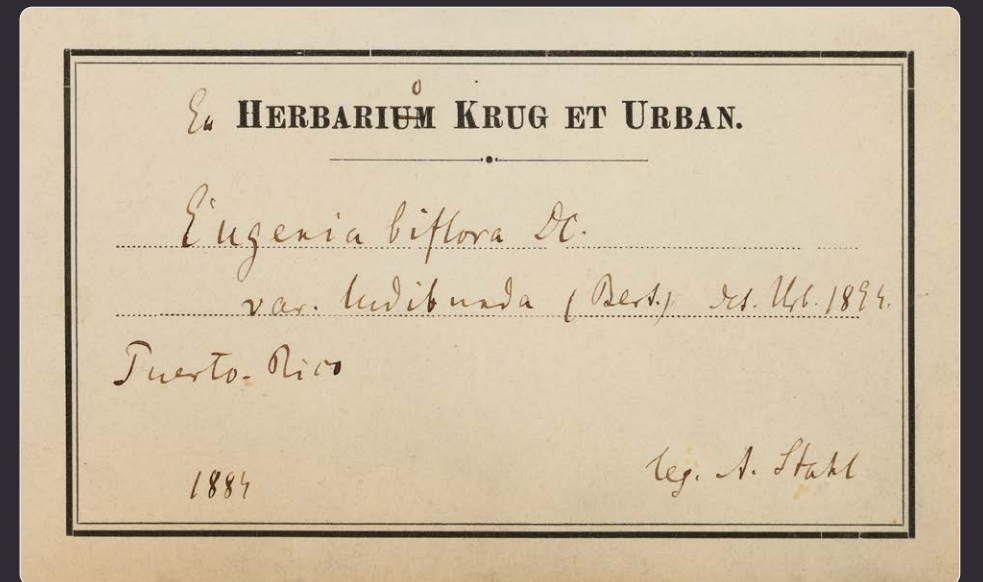 Ex HERBARIO KRUG ET URBAN.
Eugenia biflora DC.
var. ludibunda (Bert.) det. Urb. 1894.
Puerto-Rico
1884
leg. A. Stahl